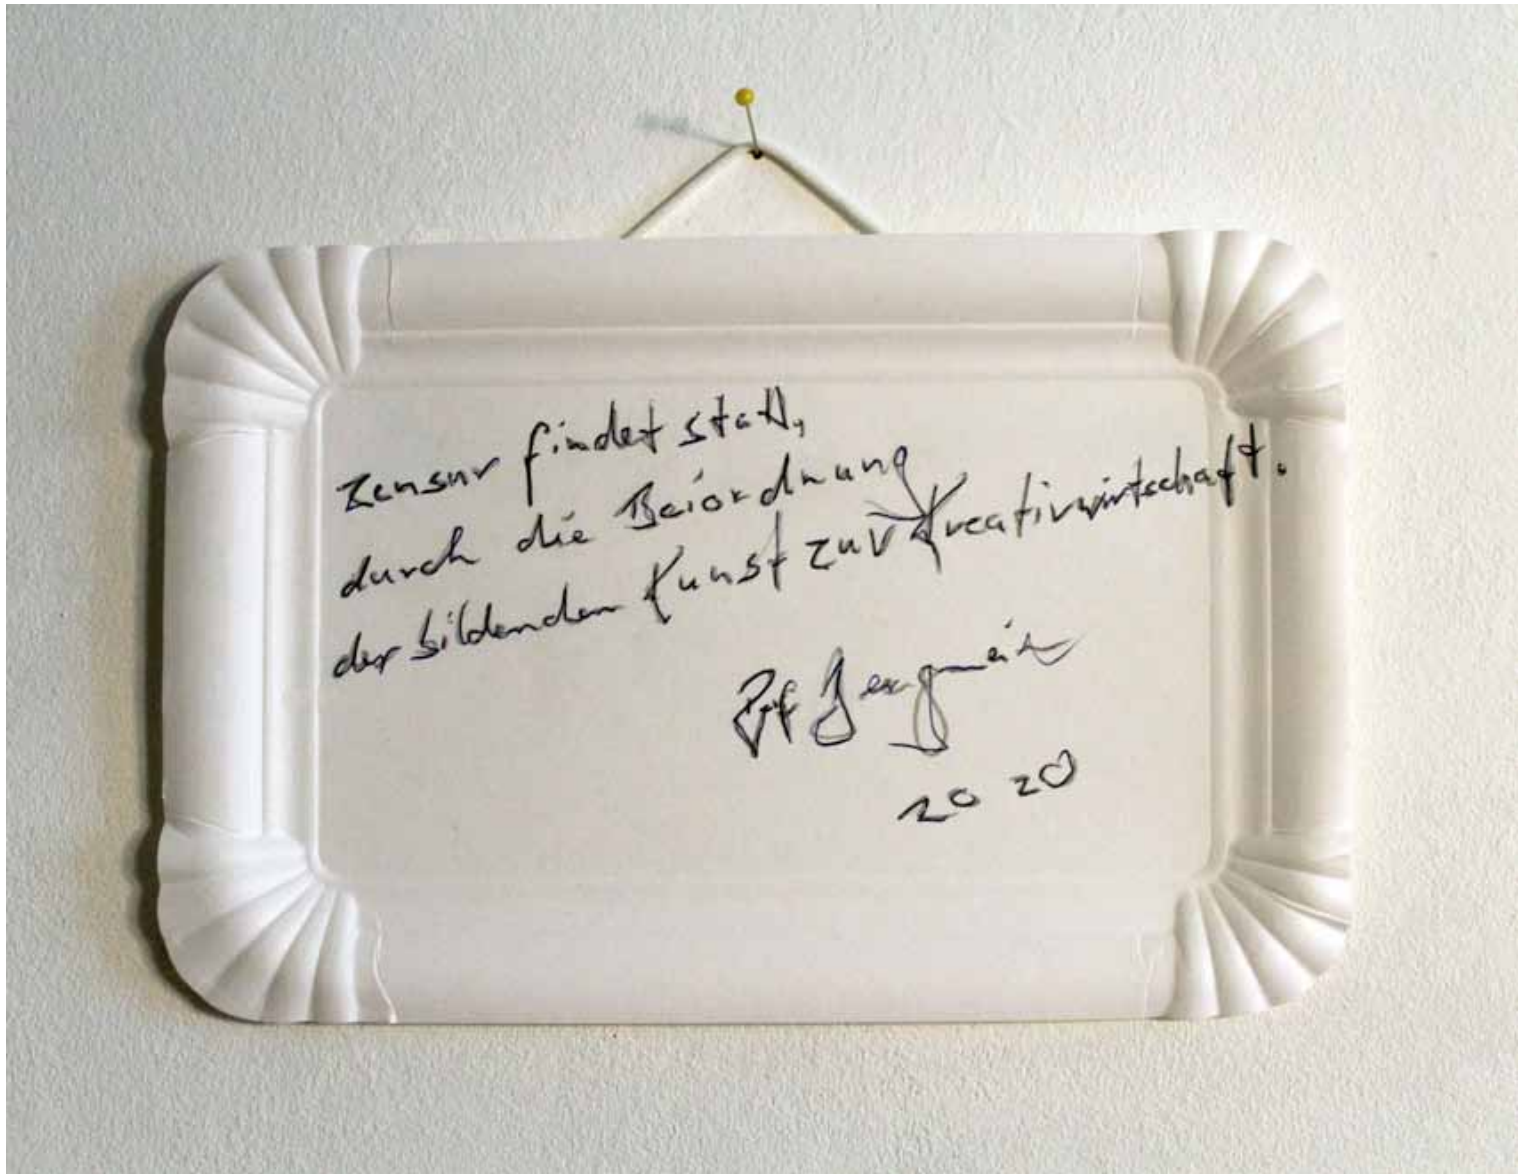 Zensur findet statt,
durch die Beiordnung
der bildenden Kunst zur Kreativwirtschaft.
2020